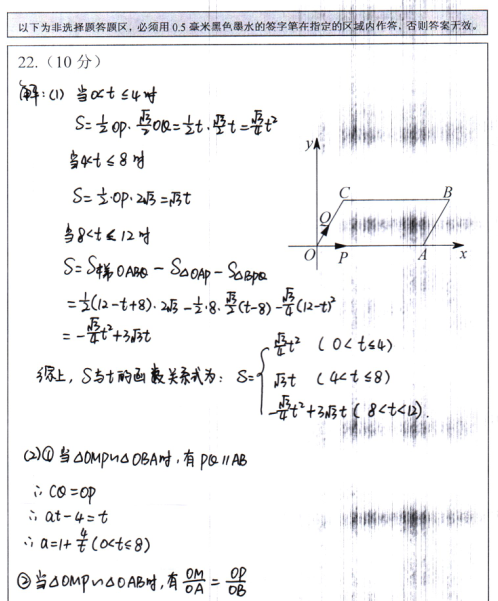 以下为非选择题答题区，必须用 0.5 毫米黑色墨水的签字笔在指定的区域内作答，否则答案无效。
22.（10 分）
解：(1) 当0<t≤4时
S=½OP·√3/2 OQ=½t·√3/2 t=√3/4 t²
当4<t≤8时
S=½·OP·2√3=√3t
当8<t≤12时
S=S梯OABQ－S△OAP－S△BPQ
=½(12-t+8)·2√3-½·8·√3/2(t-8)-√3/4(12-t)²
=-√3/4 t²+3√3t
综上，S与t的函数关系式为：S={
√3/4 t² (0<t≤4)
√3t (4<t≤8)
-√3/4 t²+3√3t (8<t<12).
y
C
B
Q
O
P
A
x
(2)① 当△OMP∽△OBA时,有PQ∥AB
∴CQ=OP
∴at-4=t
∴a=1+4/t (0<t≤8)
②当△OMP∽△OAB时,有OM/OA=OP/OB